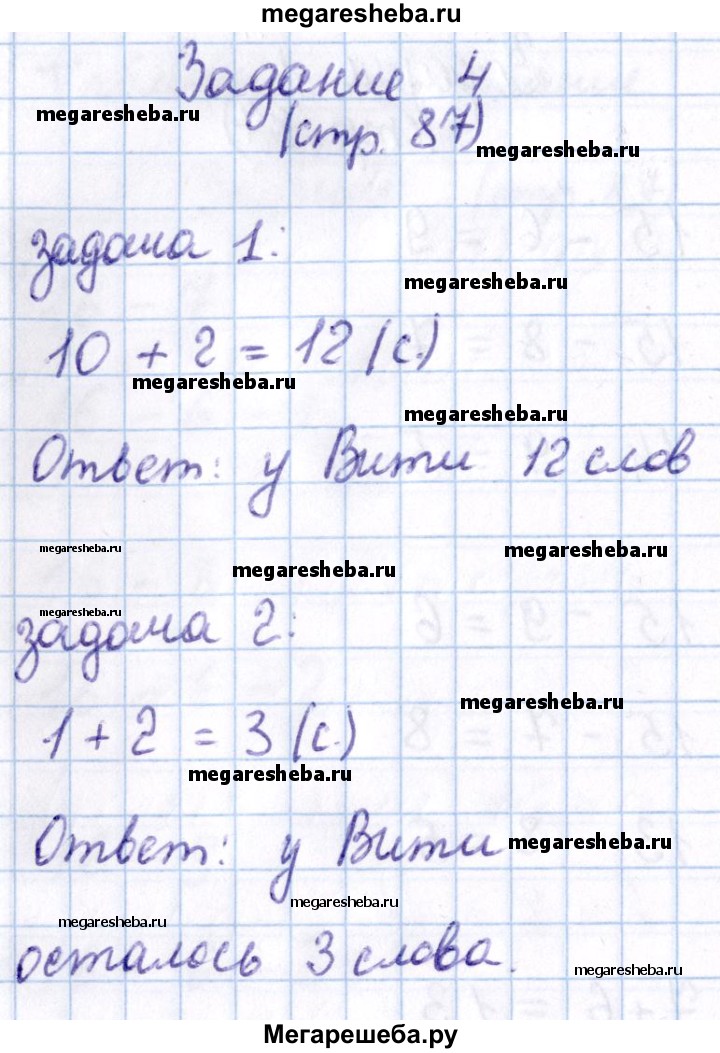 megaresheba.ru
Задание 4
megaresheba.ru
(стр. 87)
megaresheba.ru
задача 1:
megaresheba.ru
10 + 2 = 12 (с.)
megaresheba.ru
megaresheba.ru
Ответ: у Вити 12 слов
megaresheba.ru
megaresheba.ru
megaresheba.ru
megaresheba.ru
задача 2:
megaresheba.ru
1 + 2 = 3 (с.)
megaresheba.ru
Ответ: у Вити
megaresheba.ru
megaresheba.ru
megaresheba.ru
осталось 3 слова.
megaresheba.ru
Мегарешеба.ру